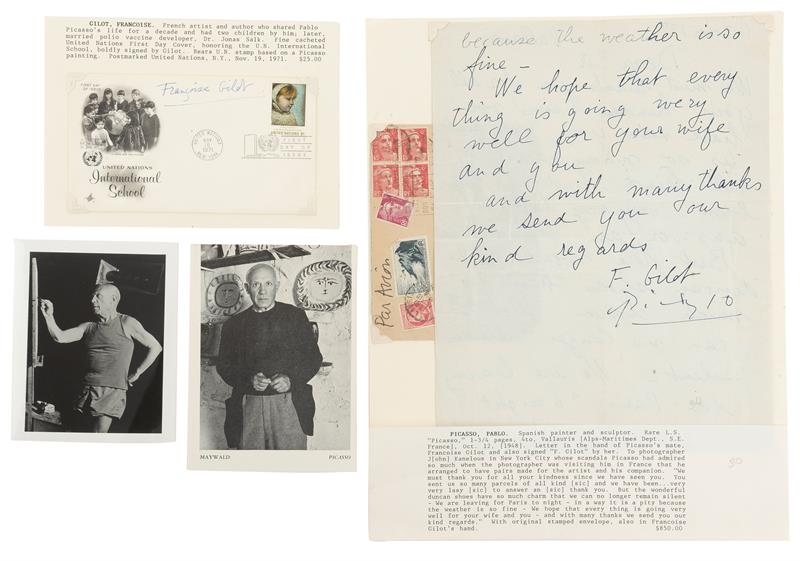 GILOT, FRANCOISE. French artist and author who shared Pablo
Picasso's life for a decade and had two children by him; later,
married polio vaccine developer, Dr. Jonas Salk. Fine cacheted
United Nations First Day Cover, honoring the U.N. International
School, boldly signed by Gilot. Bears U.N. stamp based on a Picasso
painting. Postmarked United Nations, N.Y., Nov. 19, 1971. $25.00
FIRST DAY OF ISSUE
Françoise Gilot
UNITED NATIONS
NOV
19
1971
NEW YORK
UNITED NATIONS 8c
FIRST
DAY OF
ISSUE
UNITED NATIONS
International
School
MAYWALD
PICASSO
Par Avion
because the weather is so
fine —
We hope that every
thing is going very
well for your wife
and you
and with many thanks
we send you our
kind regards
F. Gilot
Picasso
PICASSO, PABLO. Spanish painter and sculptor. Rare L.S.
"Picasso," 1-3/4 pages, 4to, Vallauris [Alps-Maritimes Dept., S.E.
France], Oct. 12, [1948]. Letter in the hand of Picasso's mate,
Francoise Gilot and also signed "F. Gilot" by her. To photographer
J[ohn] Kanelous in New York City whose scandals Picasso had admired
so much when the photographer was visiting him in France that he
arranged to have pairs made for the artist and his companion. "We
must thank you for all your kindness since we have seen you. You
sent us so many parcels of all kind [sic] and we have been.. very
very lasy [sic] to answer an [sic] thank you. But the wonderful
duncan shoes have so much charm that we can no longer remain silent
- We are leaving for Paris to night - in a way it is a pity because
the weather is so fine - We hope that every thing is going very
well for your wife and you - and with many thanks we send you our
kind regards." With original stamped envelope, also in Francoise
Gilot's hand. $850.00